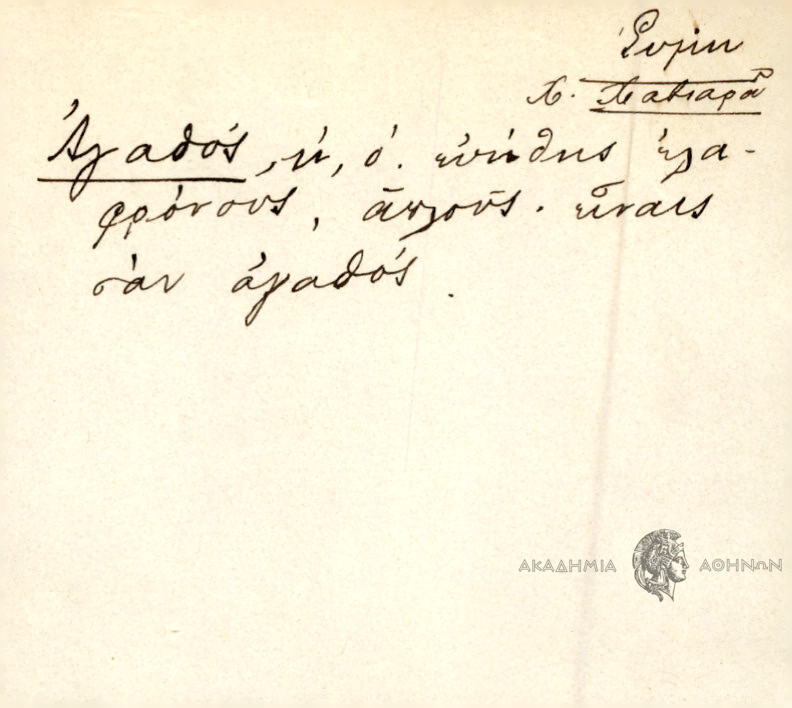 Σύμη
Χ. Χαβιαρᾶ
Ἀγαθός, ή, ό. εὐήθης ἐλα-
φρόνους, ἁπλοῦς. εἶναις
σὰν ἀγαθός.
ΑΚΑΔΗΜΙΑ ΑΘΗΝΩΝ